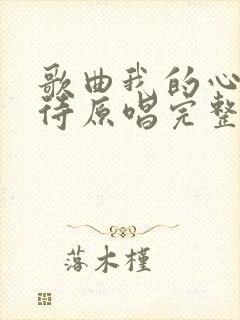 歌曲我的心
待原唱完整
落木槿